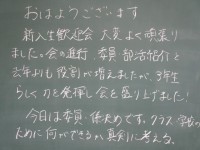 おはようございます
新入生歓迎会 大変よく頑張り
ました。会の進行、委員 部活紹介と
去年よりも役割が増えましたが、3年生
らしく力を発揮し会を盛り上げました!
今日は委員・係決めです。クラス、学校の
ために何ができるか真剣に考える。